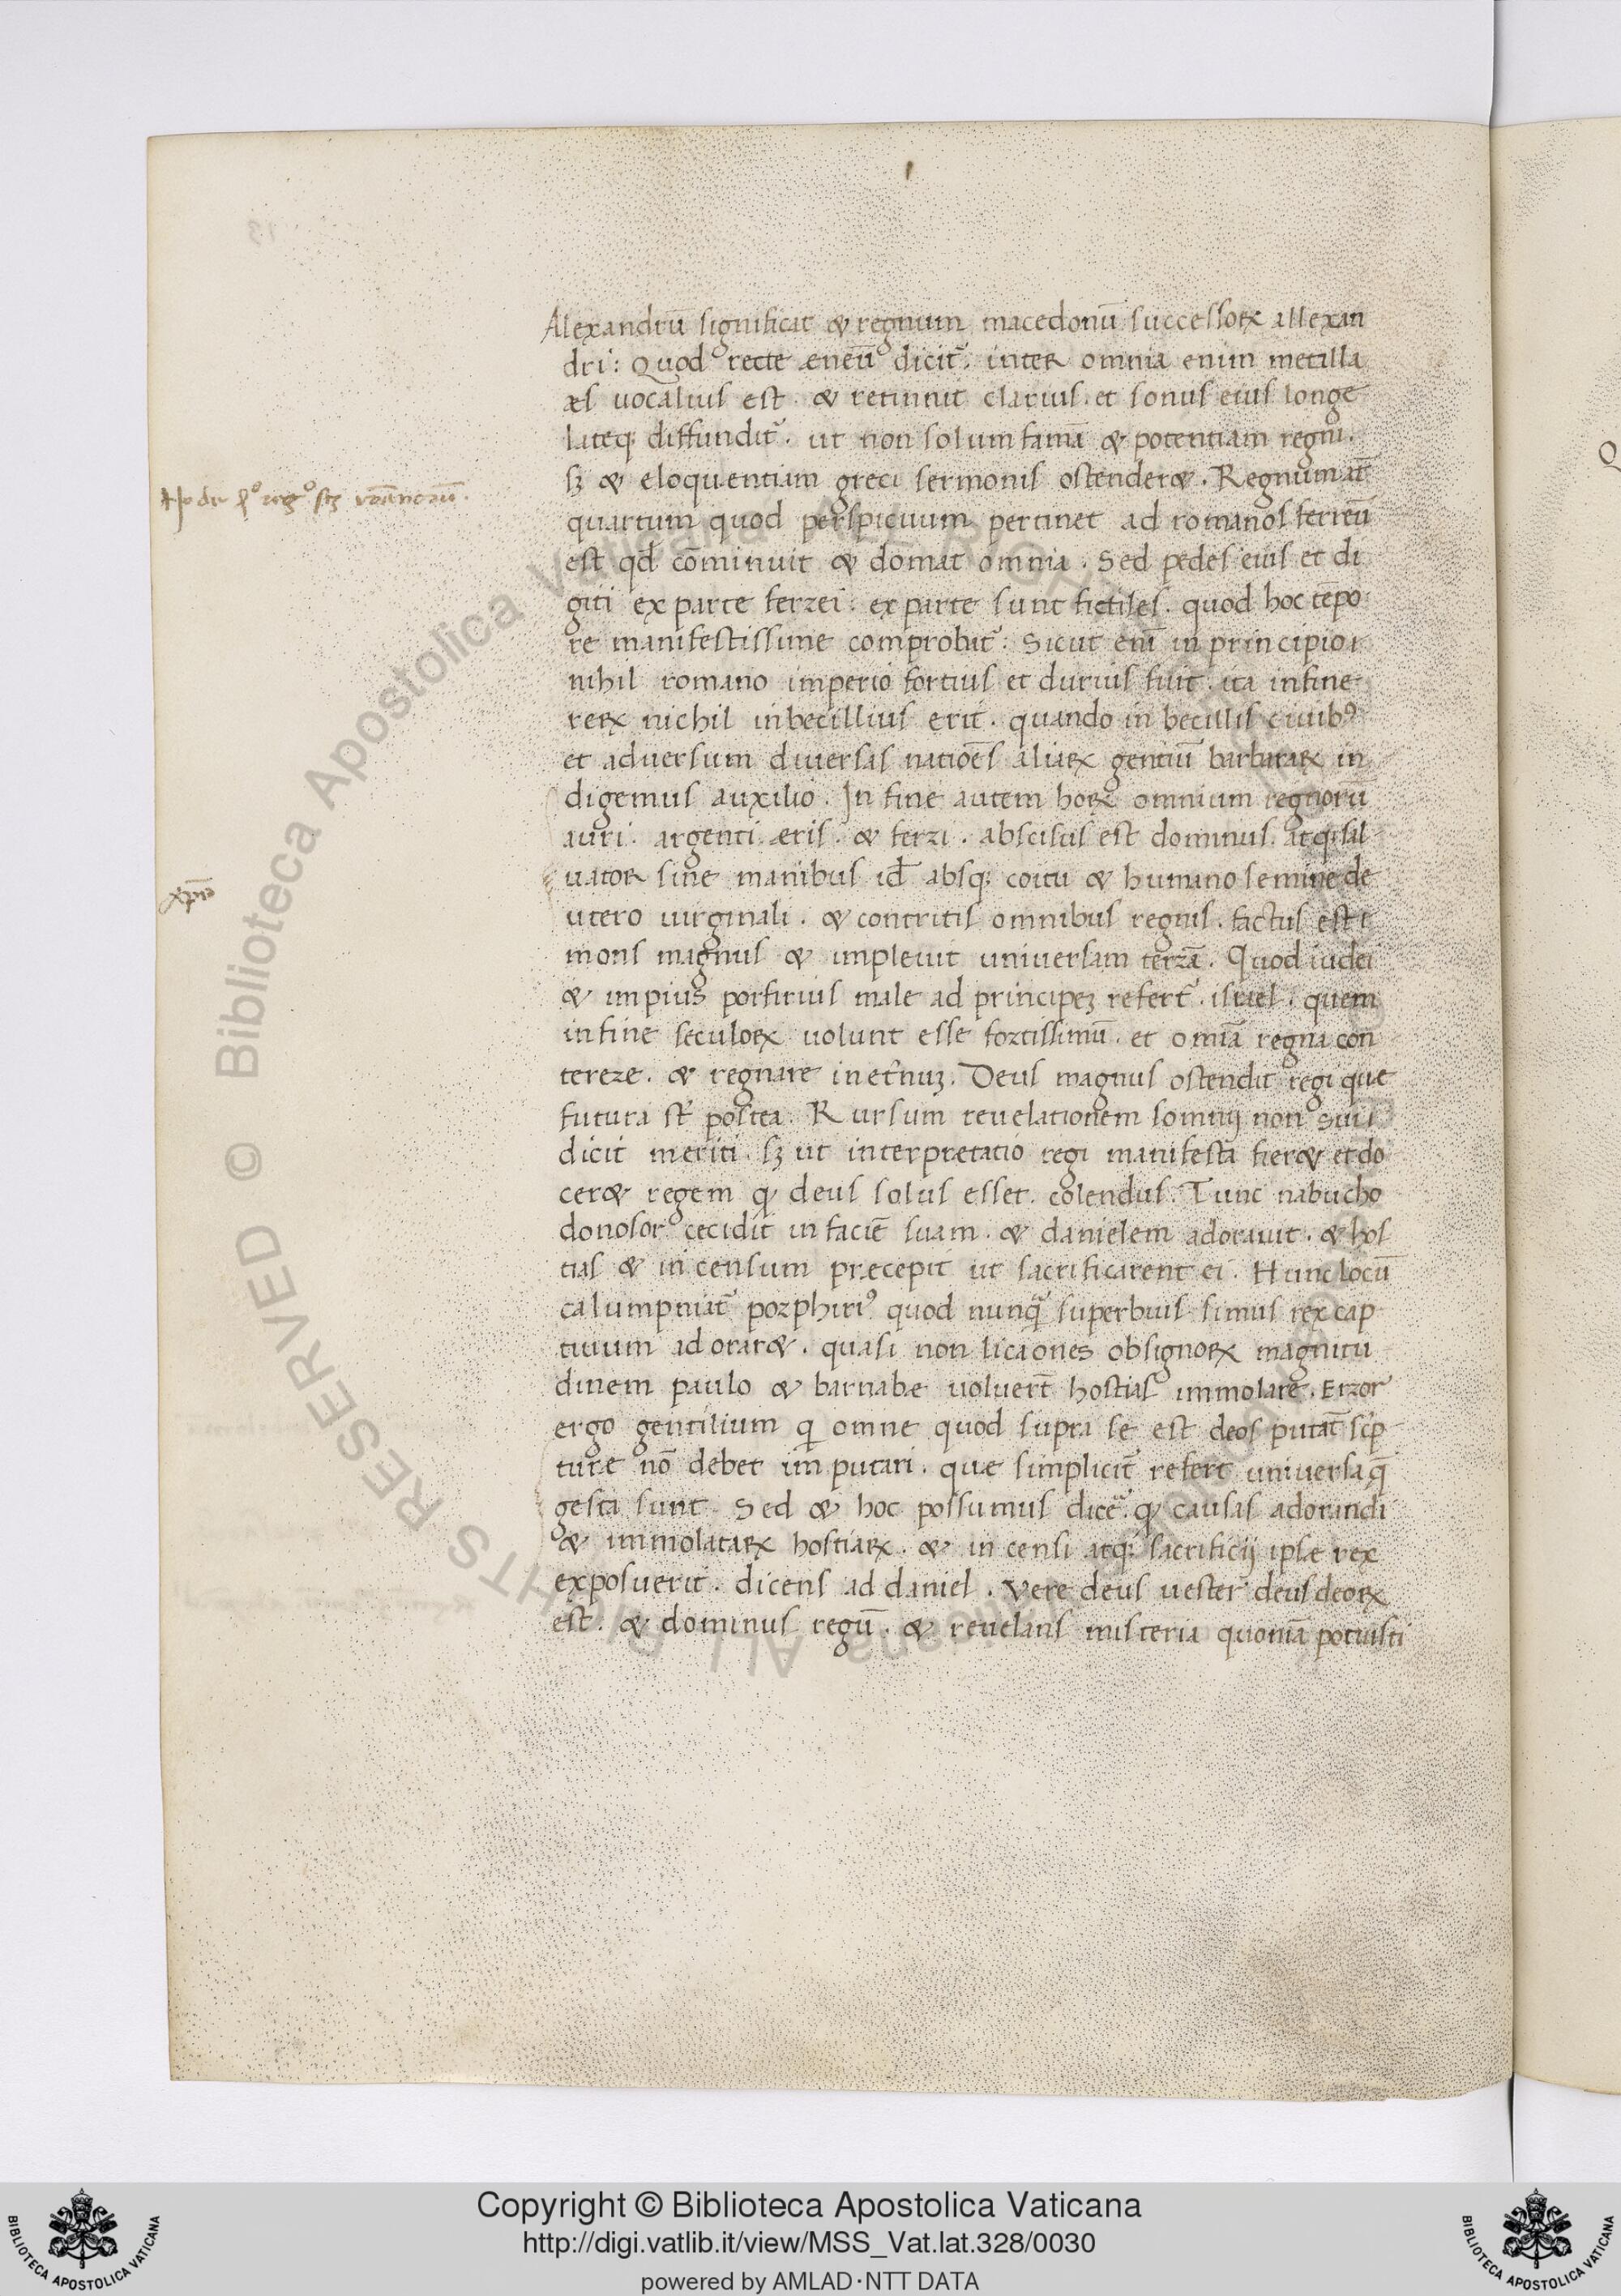 Alexandrū significat & regnum macedonū successorꝝ allexan
dri: Quod recte eneū dicit᷑. inter omnia enim metalla
æs uocalius est. & retinnit clarius. et sonus eius longe
lateq; diffundit᷑. ut non solum famā & potentiam regni.
sꝫ & eloquentiam greci sermonis ostender&. Regnum at̄
quartum quod perspicuum pertinet ad romanos ferreū
est qd̄ cōminuit & domat omnia. Sed pedes eius et di
giti ex parte ferrei. ex parte sunt fictiles. quod hoc tēpo
re manifestissime comprobat᷑. Sicut enī in principio
nihil romano imperio fortius et durius fuit. ita in fine
rerꝝ nichil inbecillius erit. quando in becillis ciuibꝰ
et adversum diuersas natiōes aliarꝝ gentiū barbararꝝ in
digemus auxilio. In fine autem horꝝ omnium regnorū
auri. argenti eris. & ferri. abscisus est dominus. atq; sal
uator sine manibus id̄ absq; coitu & humano semine de
utero uirginali. & contritis omnibus regnis. factus est
mons magnus & impleuit universam terrā. Quod iudei
& impius porfirius male ad principeꝫ refert̄. israel. quem
in fine seculorꝝ uolunt esse fortissimū. et omīa regna con
terere. & regnare in et̄nuꝫ. Deus magnus ostendit regi que
futura st̄ postea. Rursum reuelationem somnij non sui
dicit meriti. sꝫ ut interpretatio regi manifesta fier& et do
cer& regem ꝙ deus solus esset. colendus. Tunc nabucho
donosor cecidit in faciē suam. & danielem adorauit. & hos
tias & in censum præcepit ut sacrificarent ei. Hunc locū
calumpniat᷑ porphiriꝰ quod nunq̄ superbuis simus rex cap
tiuum ad orar&. quasi non licaones ob signorꝝ magnitu
dinem paulo & barnabe uoluert̄ hostias immolare. Error
ergo gentilium qi omne quod supra se est deos putat̄ sc̄p
ture nō debet im putari. que simplicit̄ refert universa q̄
gesta sunt. Sed & hoc possumus dicē. ꝙ causas adorandi
& immolatarꝝ hostiarꝝ. & in censi atq; sacrificij ipse rex
exposuerit. dicens ad daniel. Vere deus uester deus deorꝝ
est. & dominus regū. & reuelans misteria quoniā potuisti
Copyright © Biblioteca Apostolica Vaticana
http://digi.vatlib.it/view/MSS_Vat.lat.328/0030
powered by AMLAD·NTT DATA
BIBLIOTECA APOSTOLICA VATICANA
BIBLIOTECA APOSTOLICA VATICANA